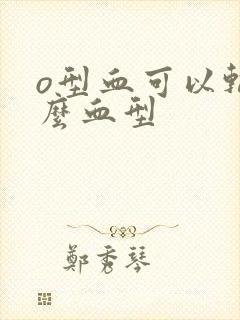 o型血可以
麼血型
鄭秀琴